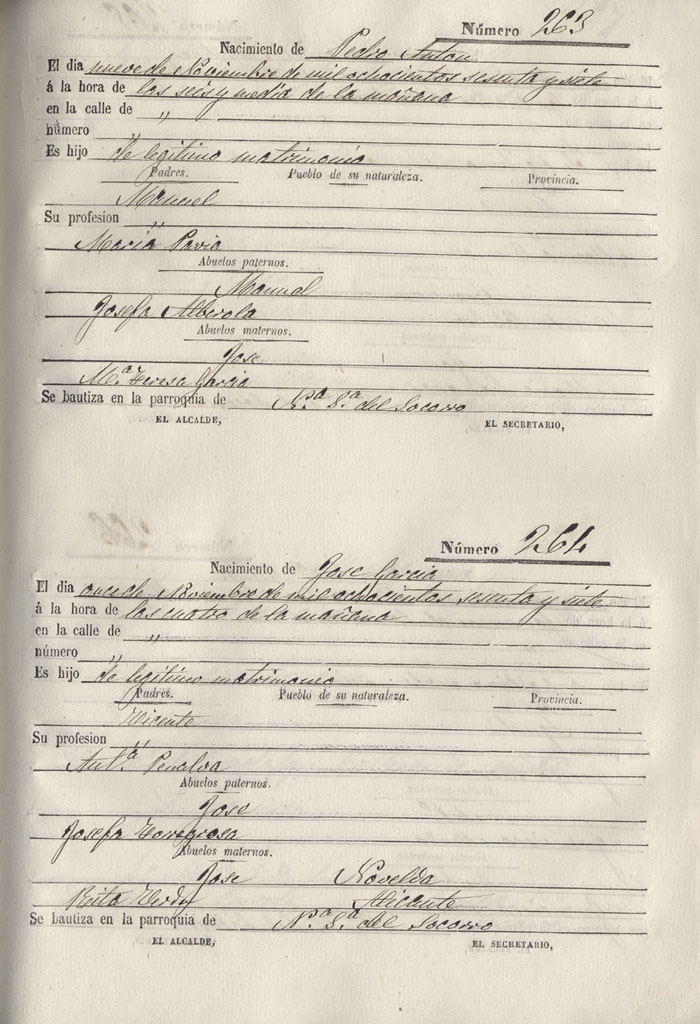 Número 263
Nacimiento de Pedro Anton
El dia nueve de Noviembre de mil ochocientos sesenta y siete
á la hora de las seis y media de la mañana
en la calle de "
número
Es hijo de legitimo matrimonio
Padres. Pueblo de su naturaleza. Provincia.
Manuel
Su profesion "
Maria Pavia
Abuelos paternos.
Manuel
Josefa Alberola
Abuelos maternos.
Jose
M.ª Teresa Garcia
Se bautiza en la parroquia de N.ª S.ª del Socorro
EL ALCALDE, EL SECRETARIO,
Número 264
Nacimiento de Jose Garcia
El dia once de Noviembre de mil ochocientos sesenta y siete
á la hora de las cuatro de la mañana
en la calle de "
número "
Es hijo de legitimo matrimonio
Padres. Pueblo de su naturaleza. Provincia.
Vicente
Su profesion "
Ant.ª Penalva
Abuelos paternos.
Jose
Josefa Torregrosa
Abuelos maternos.
Jose Novelda
Rita Verdu Alicante
Se bautiza en la parroquia de N.ª S.ª del Socorro
EL ALCALDE, EL SECRETARIO,